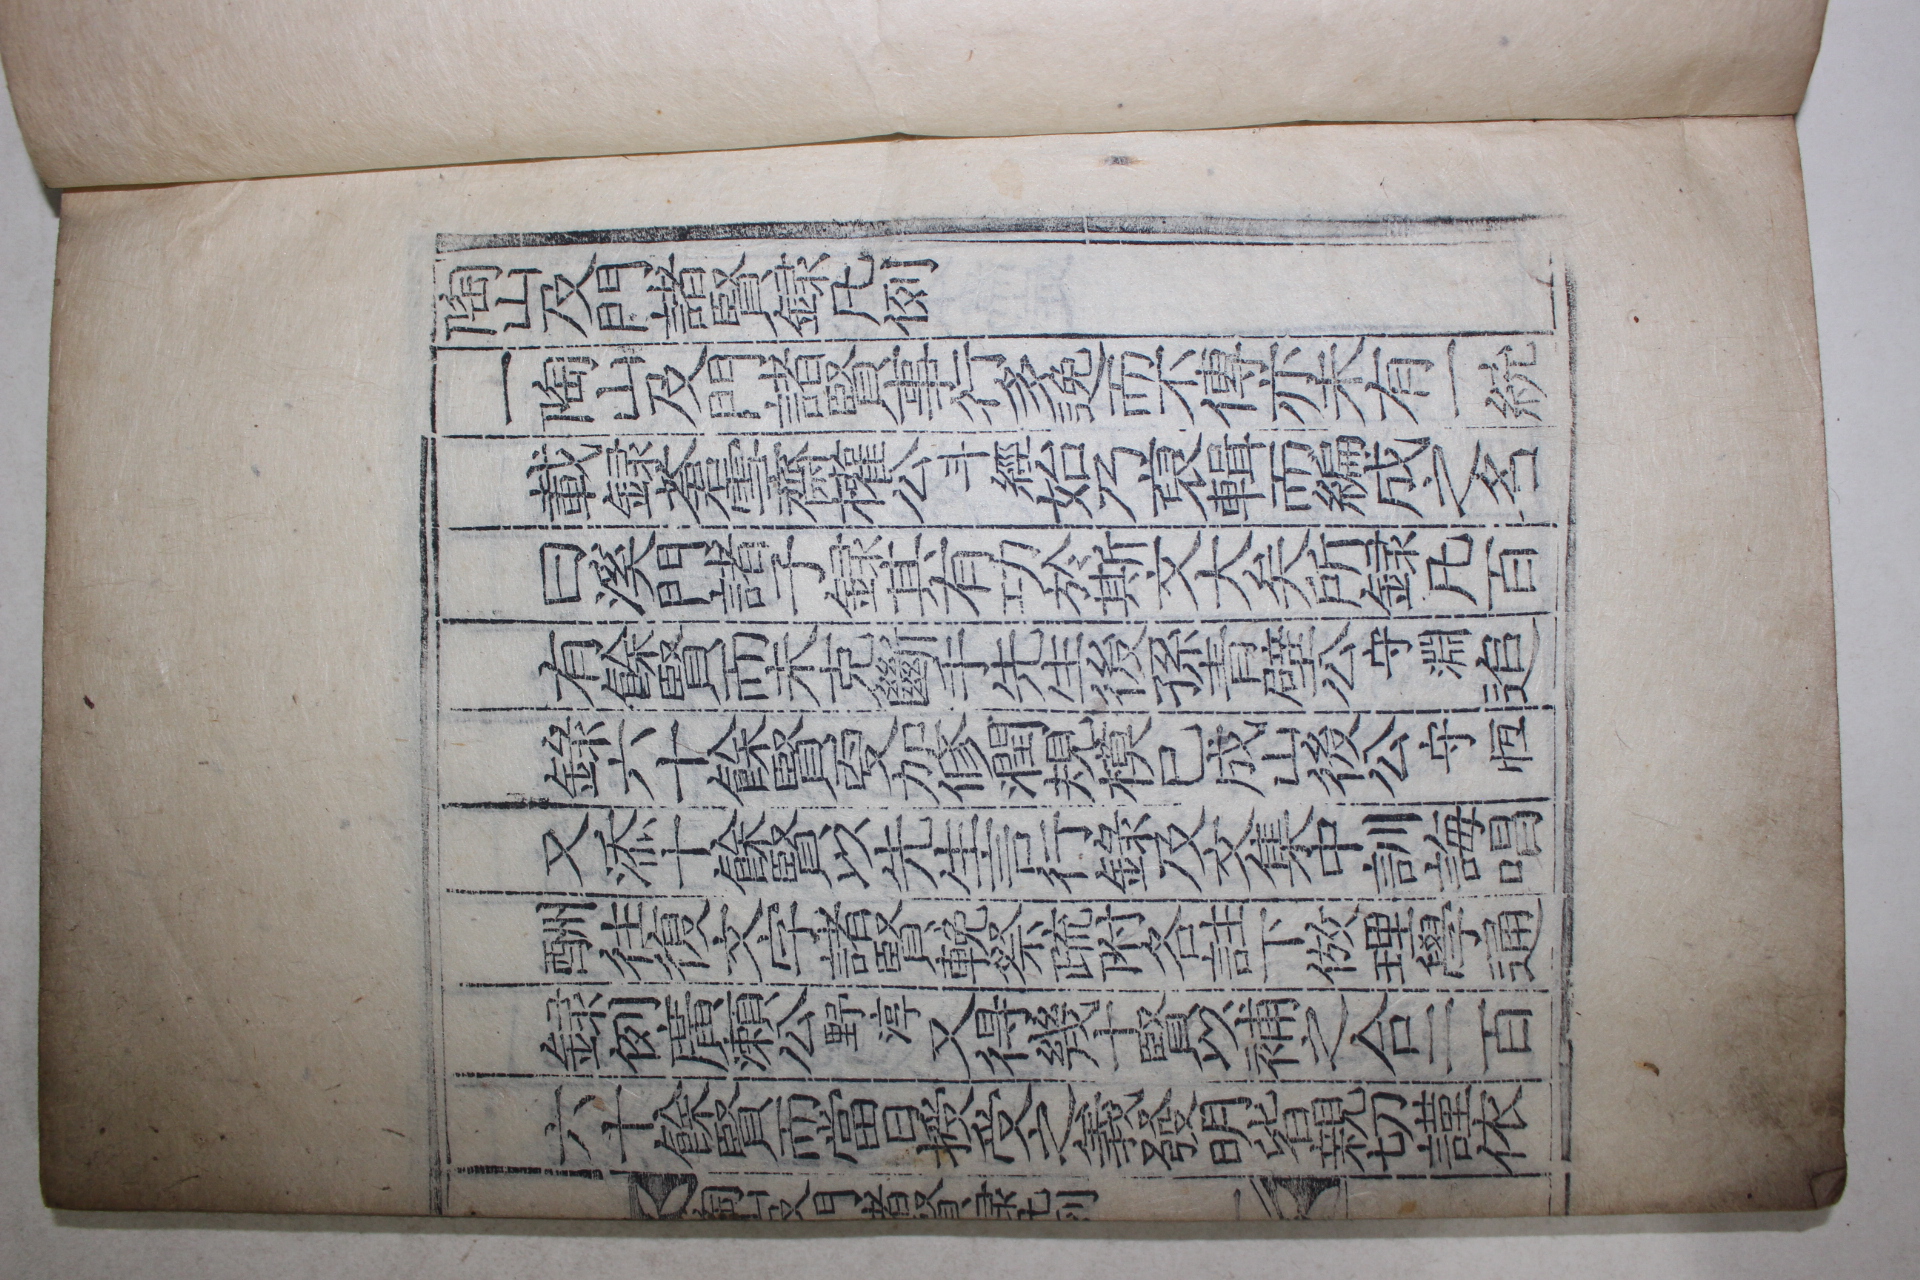 陶山及門諸賢録凡例
一陶山及門諸賢事行多逸而不傳亦未有一統
載録蒼雪齋權公斗經始乃裒輯而編成之名
曰溪門諸子録其有功於斯文大矣所録凡百
有餘賢而未克斷手先生後孫青壁公守淵追
錄六十餘賢叓加修潤規模已成山後公守恒
又添十餘賢以先生言行錄及文集中訓誨唱
酬往復文字諸賢輓祭疏附各註下倣理學通
録例廣瀬公野淳又得幾十賢以補之合二百
六十餘賢而當日授受之義發明皆親切謹依
陶山及門諸賢録凡例